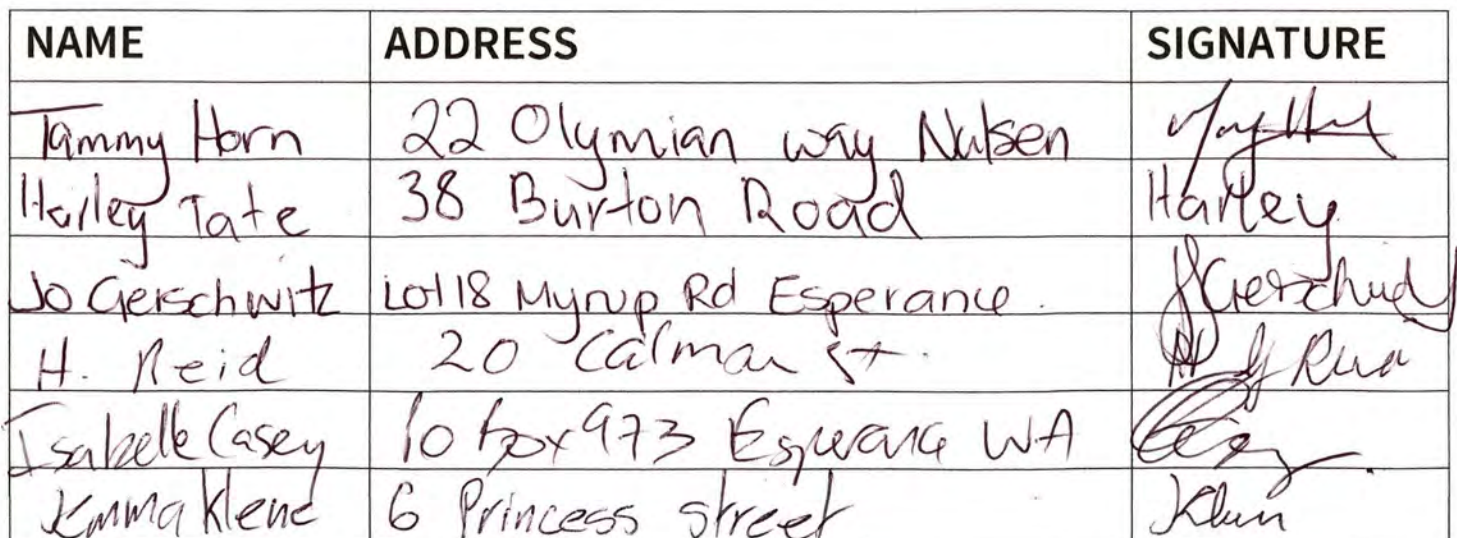 NAME ADDRESS SIGNATURE
Tammy Horn 22 Olymian way Nulsen
Harley Tate 38 Burton Road Harley
Jo Gerschwitz Lot 18 Myrup Rd Esperance.
H. Reid 20 Calmar St.
Isabelle Casey Po box 973 Esperance WA
Emma Klene 6 Princess street